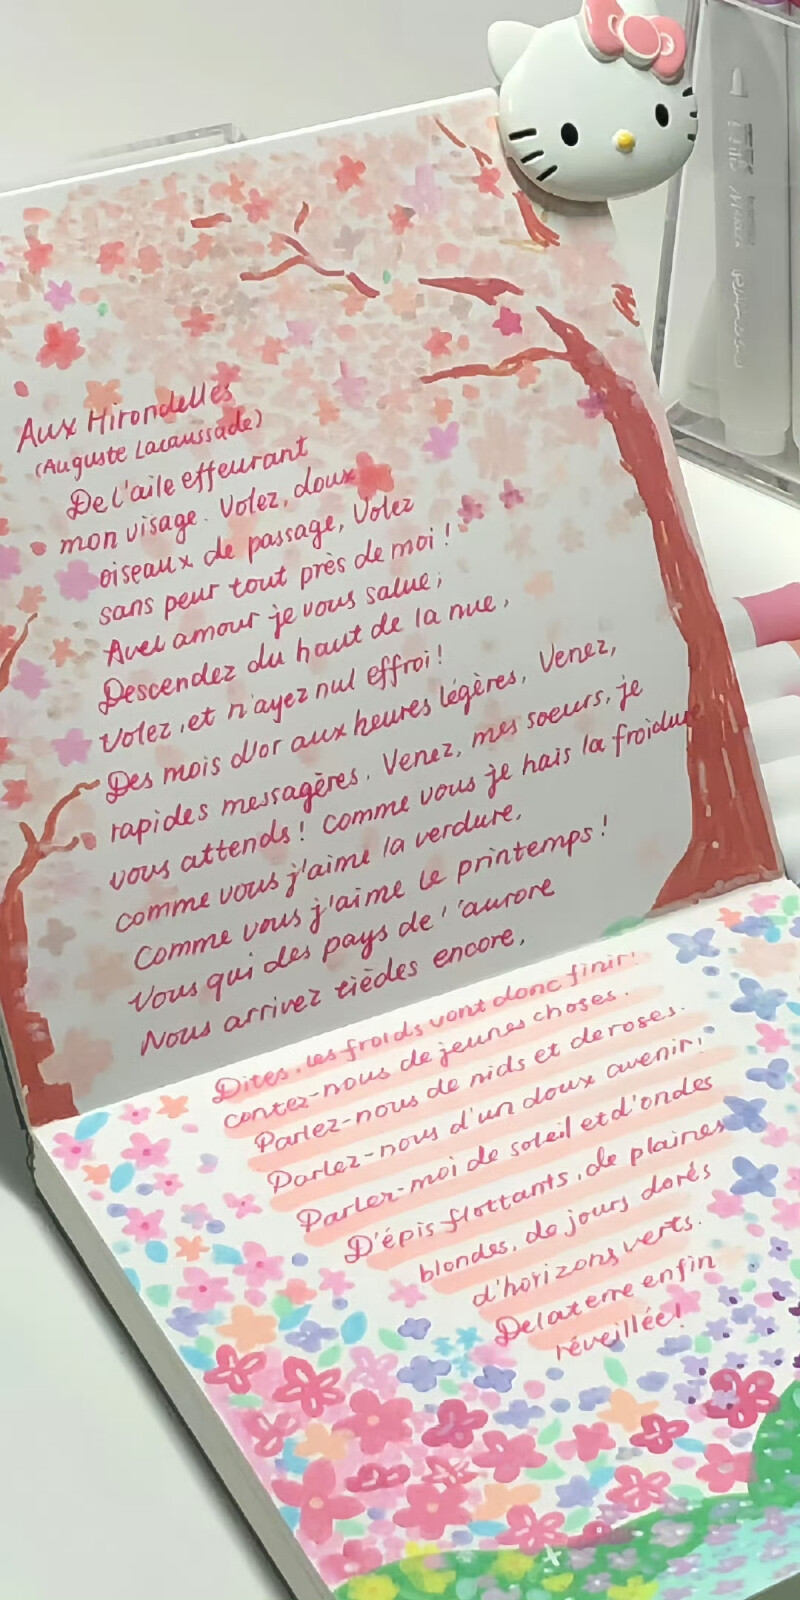 Aux Hirondelles
(Auguste Lacaussade)
De l'aile effeurant
mon visage. Volez, doux
oiseaux de passage, Volez
sans peur tout près de moi !
Avec amour je vous salue;
Descendez du haut de la nue,
Volez, et n'ayez nul effroi!
Des mois d'or aux heures légères, Venez,
rapides messagères. Venez, mes soeurs, je
vous attends! Comme vous je hais la froidure
comme vous j'aime la verdure,
Comme vous j'aime le printemps!
Vous qui des pays de l'aurore
Nous arrivez tièdes encore,
Dites, les froids vont donc finir!
contez-nous de jeunes choses.
Parlez-nous de nids et de roses.
Parlez-nous d'un doux avenir!
Parlez-moi de soleil et d'ondes
D'épis flottants, de plaines
blondes, de jours dorés
d'horizons verts.
De la terre enfin
réveillée!